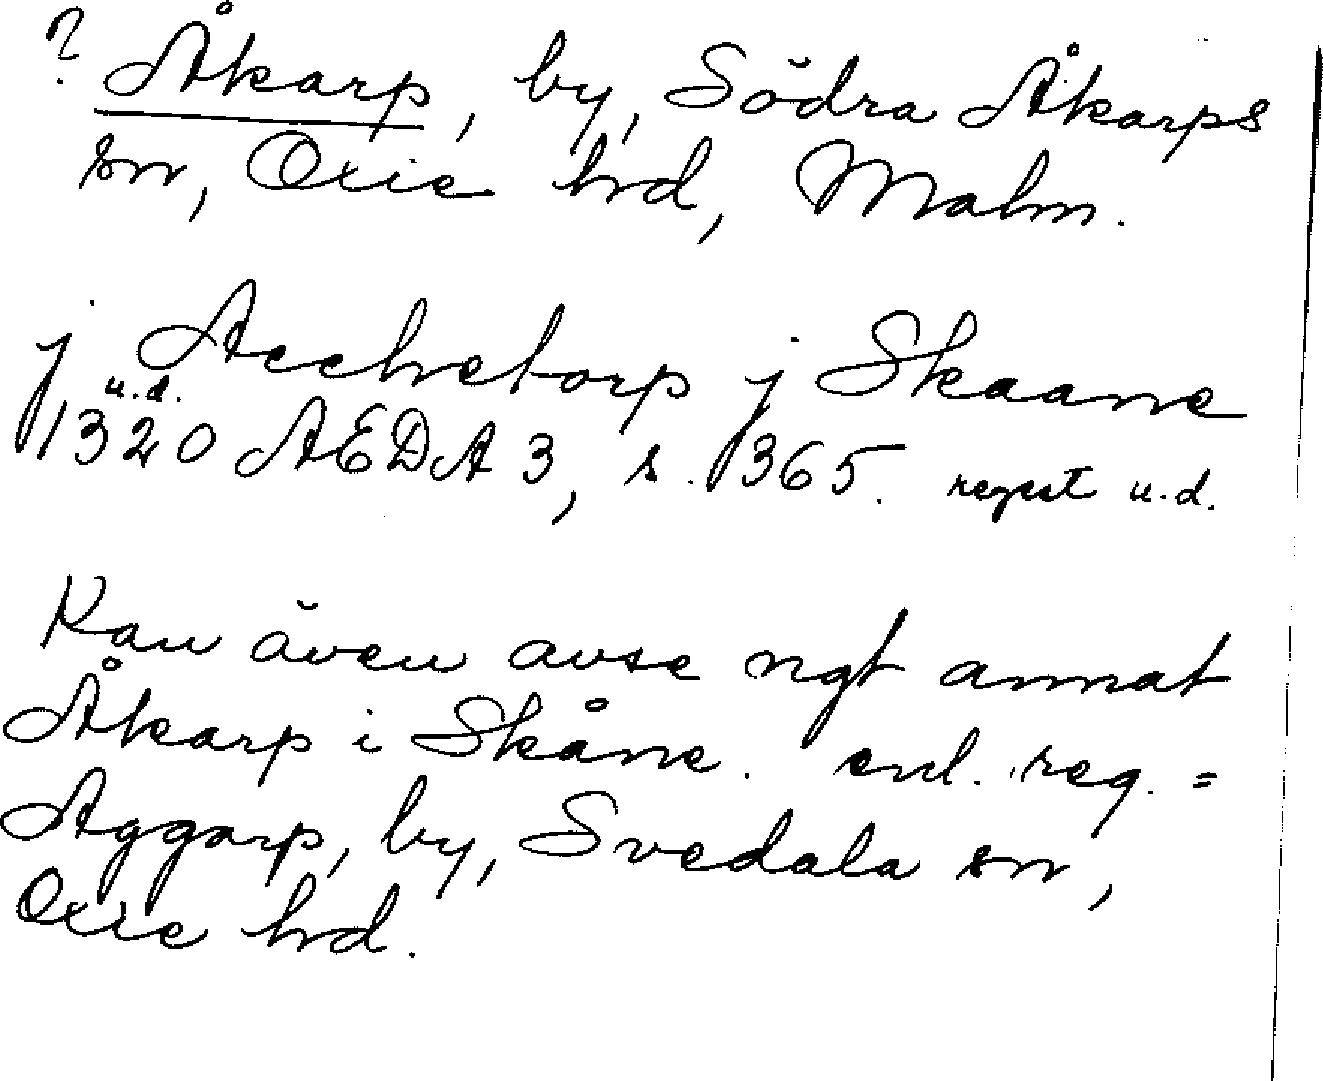 ? Åkarp, by, Södra Åkarps
sn, Oxie hd, Malm.
j Acchetorp j Skaane
u.d.
1320 AEDA 3, s. 365. regest u.d.
Kan även avse ngt annat
Åkarp i Skåne. enl. reg. =
Aggarp, by, Svedala sn,
Oxie hd.